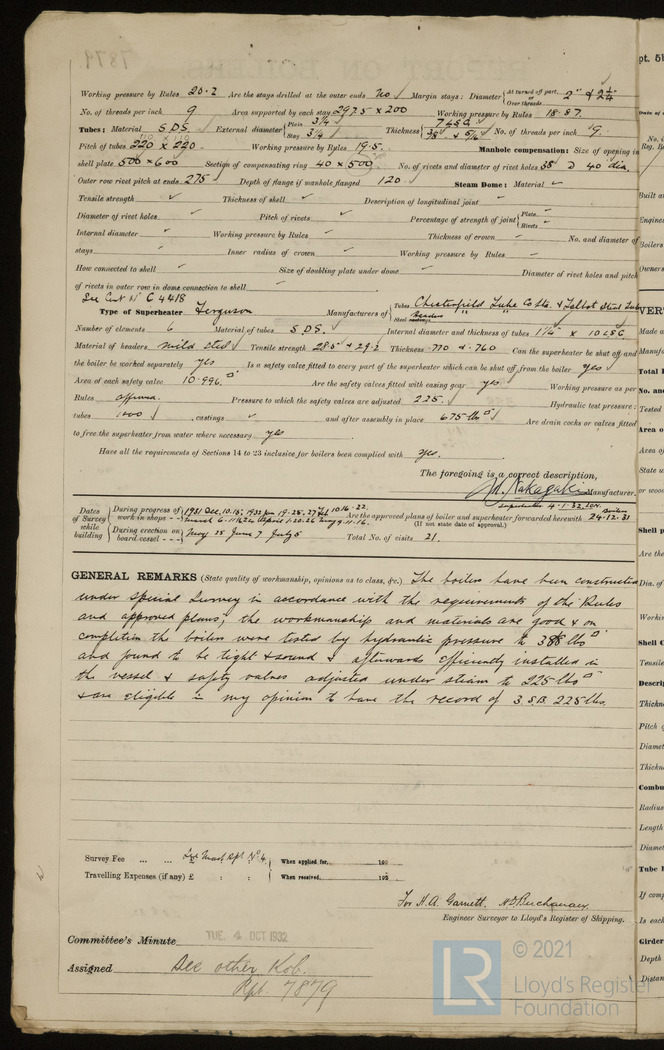 Working pressure by Rules 20.2 Are the stays drilled at the outer ends No Margin stays: Diameter { At turned off part, or Over threads 2" & 2 1/4
No. of threads per inch 9 Area supported by each stay 297.5 x 200 Working pressure by Rules 18.87.
Tubes: Material S.D.S. External diameter { Plain 3 1/4 Stay 3 1/4 Thickness { 7 LSG 3/8 & 5/16 No. of threads per inch 9.
Pitch of tubes 220 x 220 Working pressure by Rules 19.5. Manhole compensation: Size of opening in
shell plate 500 x 600 Section of compensating ring 40 x 500 No. of rivets and diameter of rivet holes 38 D 40 dia.
Outer row rivet pitch at ends 275 Depth of flange if manhole flanged 120 Steam Dome: Material
Tensile strength Thickness of shell Description of longitudinal joint
Diameter of rivet holes Pitch of rivets Percentage of strength of joint { Plate Rivets
Internal diameter Working pressure by Rules Thickness of crown No. and diameter of
stays Inner radius of crown Working pressure by Rules
How connected to shell Size of doubling plate under dome Diameter of rivet holes and pitch
of rivets in outer row in dome connection to shell
See Cert No C 4418
Type of Superheater Ferguson Manufacturers of { Tubes Chesterfield Tube Co Ltd. & Talbot Stead Tube
Steel Headers " "
Number of elements 6 Material of tubes S.D.S. Internal diameter and thickness of tubes 1 1/4" x 10 LSG.
Material of headers mild steel Tensile strength 28.5 & 29.2 Thickness 770 & .760 Can the superheater be shut off and
the boiler be worked separately yes Is a safety valve fitted to every part of the superheater which can be shut off from the boiler yes
Area of each safety valve 10.996 □" Are the safety valves fitted with easing gear yes Working pressure as per
Rules approved. Pressure to which the safety valves are adjusted 225. Hydraulic test pressure:
tubes 1000 castings and after assembly in place 675 lbs □" Are drain cocks or valves fitted
to free the superheater from water where necessary yes
Have all the requirements of Sections 14 to 23 inclusive for boilers been complied with yes.
The foregoing is a correct description,
Nakagaki Manufacturer.
Dates of Survey while building { During progress of work in shops - - 1931 Dec. 10.15; 1932 Jan 19.25.27 Feb 10.16.22. March 6.11.16.24 April 1.20.26 May 9.11.16. Are the approved plans of boiler and superheater forwarded herewith Superheater 4.1.32 LON. Boilers 24.12.31
(If not state date of approval.)
During erection on board vessel - - - May 25 June 7 July 5 Total No. of visits 21.
GENERAL REMARKS (State quality of workmanship, opinions as to class, &c.) The boilers have been constructed
under Special Survey in accordance with the requirements of the Rules
and approved plans; the workmanship and materials are good & on
completion the boilers were tested by hydraulic pressure to 388 lbs □"
and found to be tight & sound & afterwards efficiently installed in
the vessel & safety valves adjusted under steam to 225 lbs □"
& are eligible in my opinion to have the record of 3 S.B. 225 lbs.
Survey Fee ... ... £ See Mach Rpt No 4. When applied for, 193
Travelling Expenses (if any) £ : : When received, 193
For H. A. Garnett. Buchanan
Engineer Surveyor to Lloyd's Register of Shipping.
Committee's Minute TUE. 4 OCT 1932
Assigned See other Kob.
Rpt. 7879
© 2021
Lloyd's Register
Foundation
LR